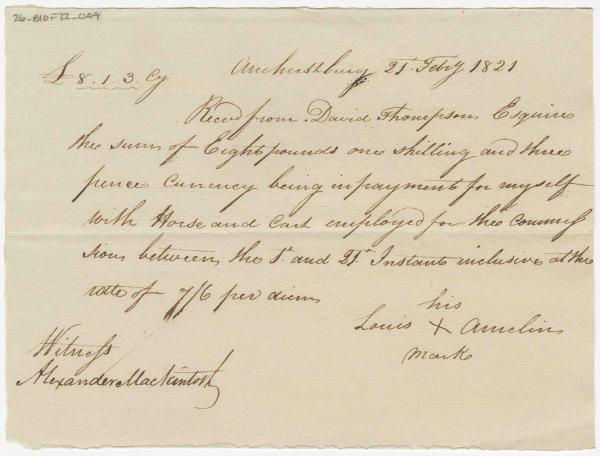 26-BIDF22-044
£ 8.1.3. Cy Amherstburg 21st Feby 1821
Recd from David Thompson Esquire
the sum of Eight pounds one shilling and three
pence Currency being in payment for myself
with Horse and Cart employed for the Commis
sion between the 1st and 21st Instant inclusive at the
rate of 7/6 per diem
his
Louis X Amelin
mark
Witness
Alexander Mackintosh